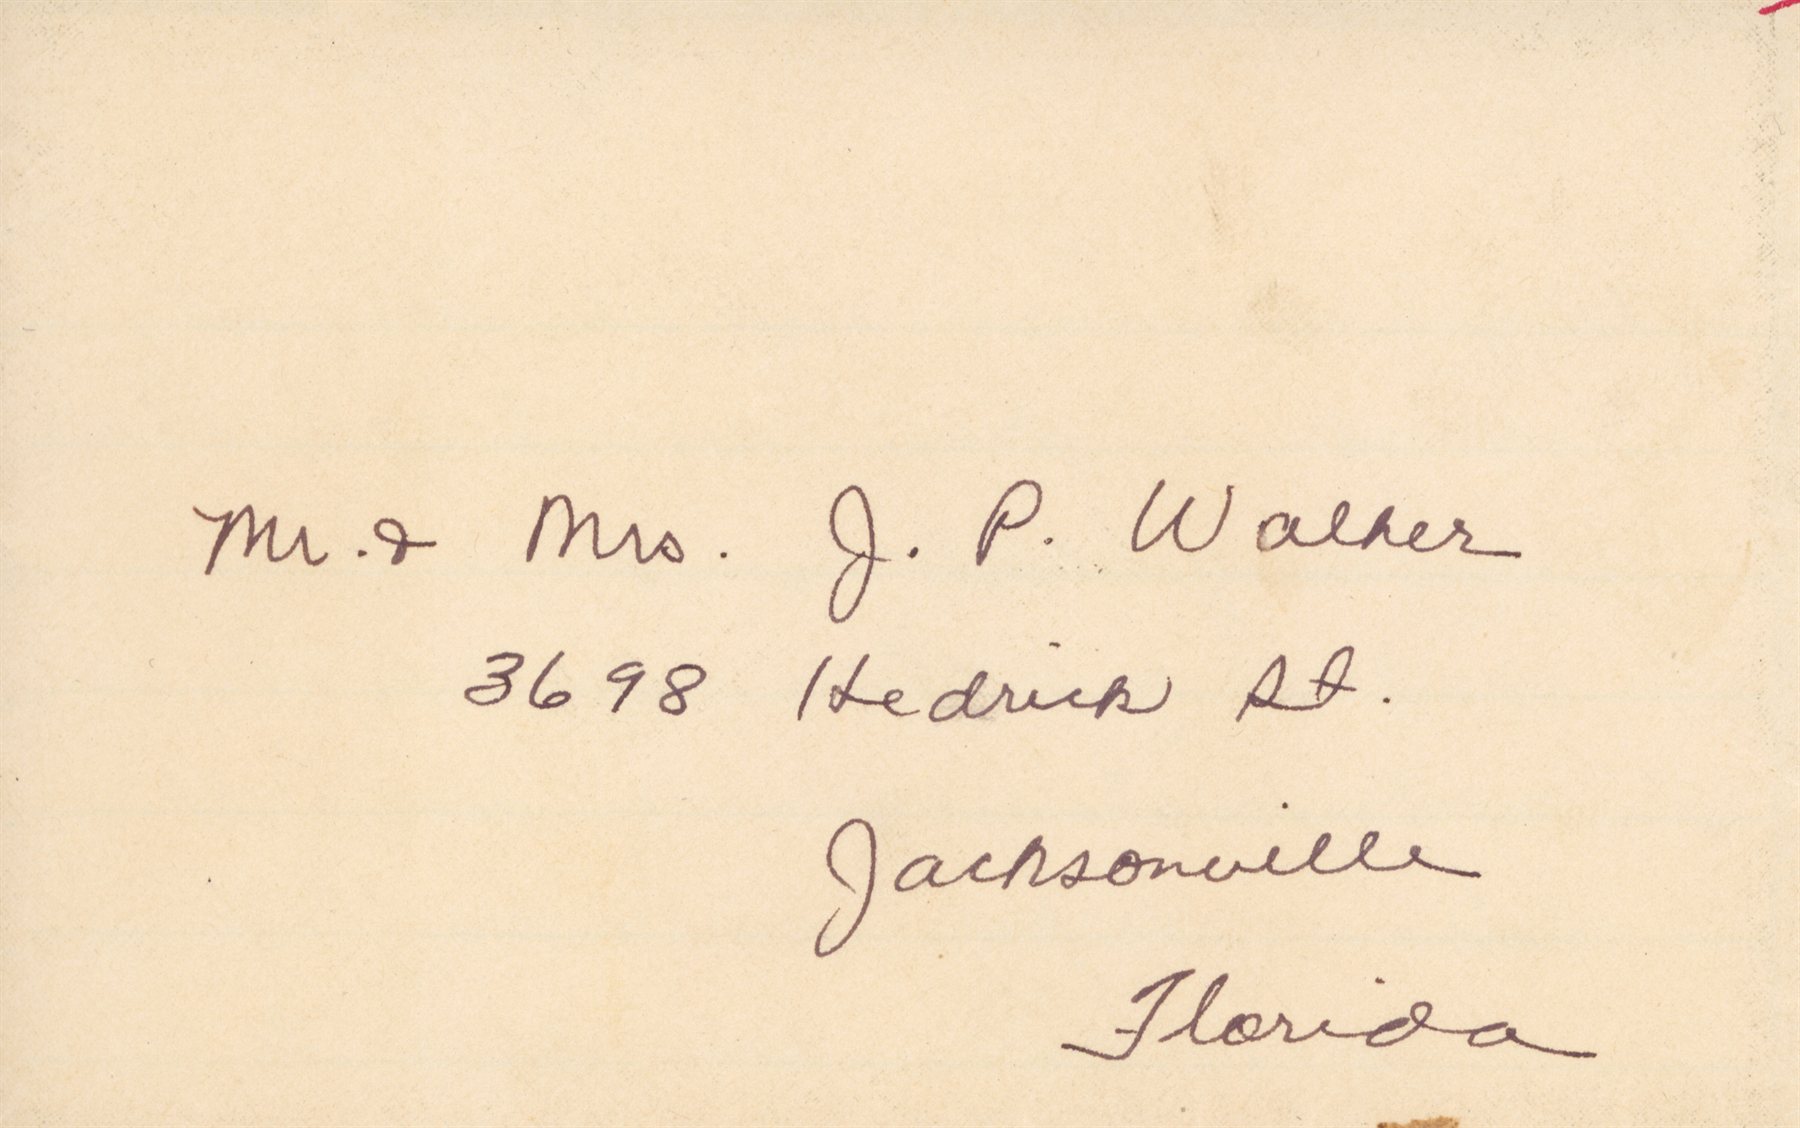 Mr. & Mrs. J. P. Walker
3698 Hedrick St.
Jacksonville
Florida